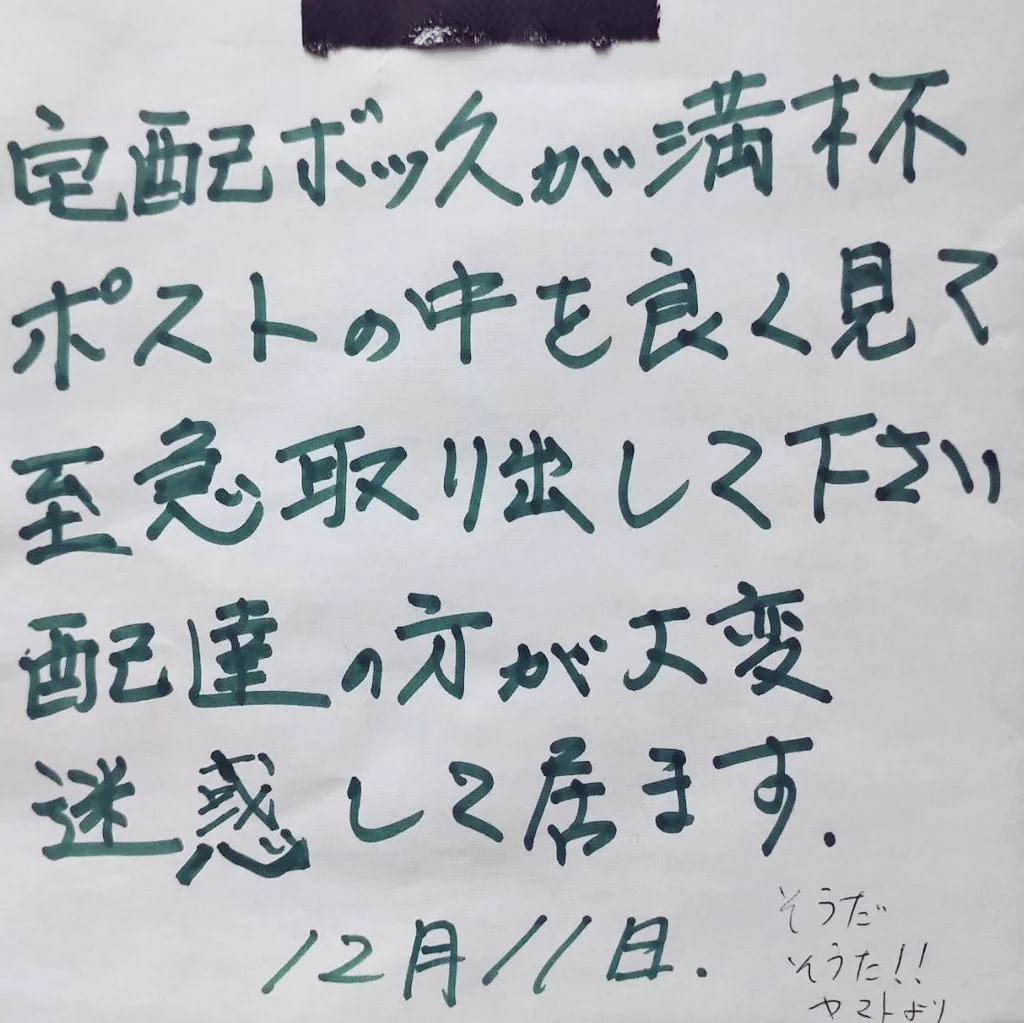 宅配ボックスが満杯
ポストの中を良く見て
至急取り出して下さい
配達の方が大変
迷惑して居ます.
12月11日.
そうだ
そうだ!!
ヤマトより